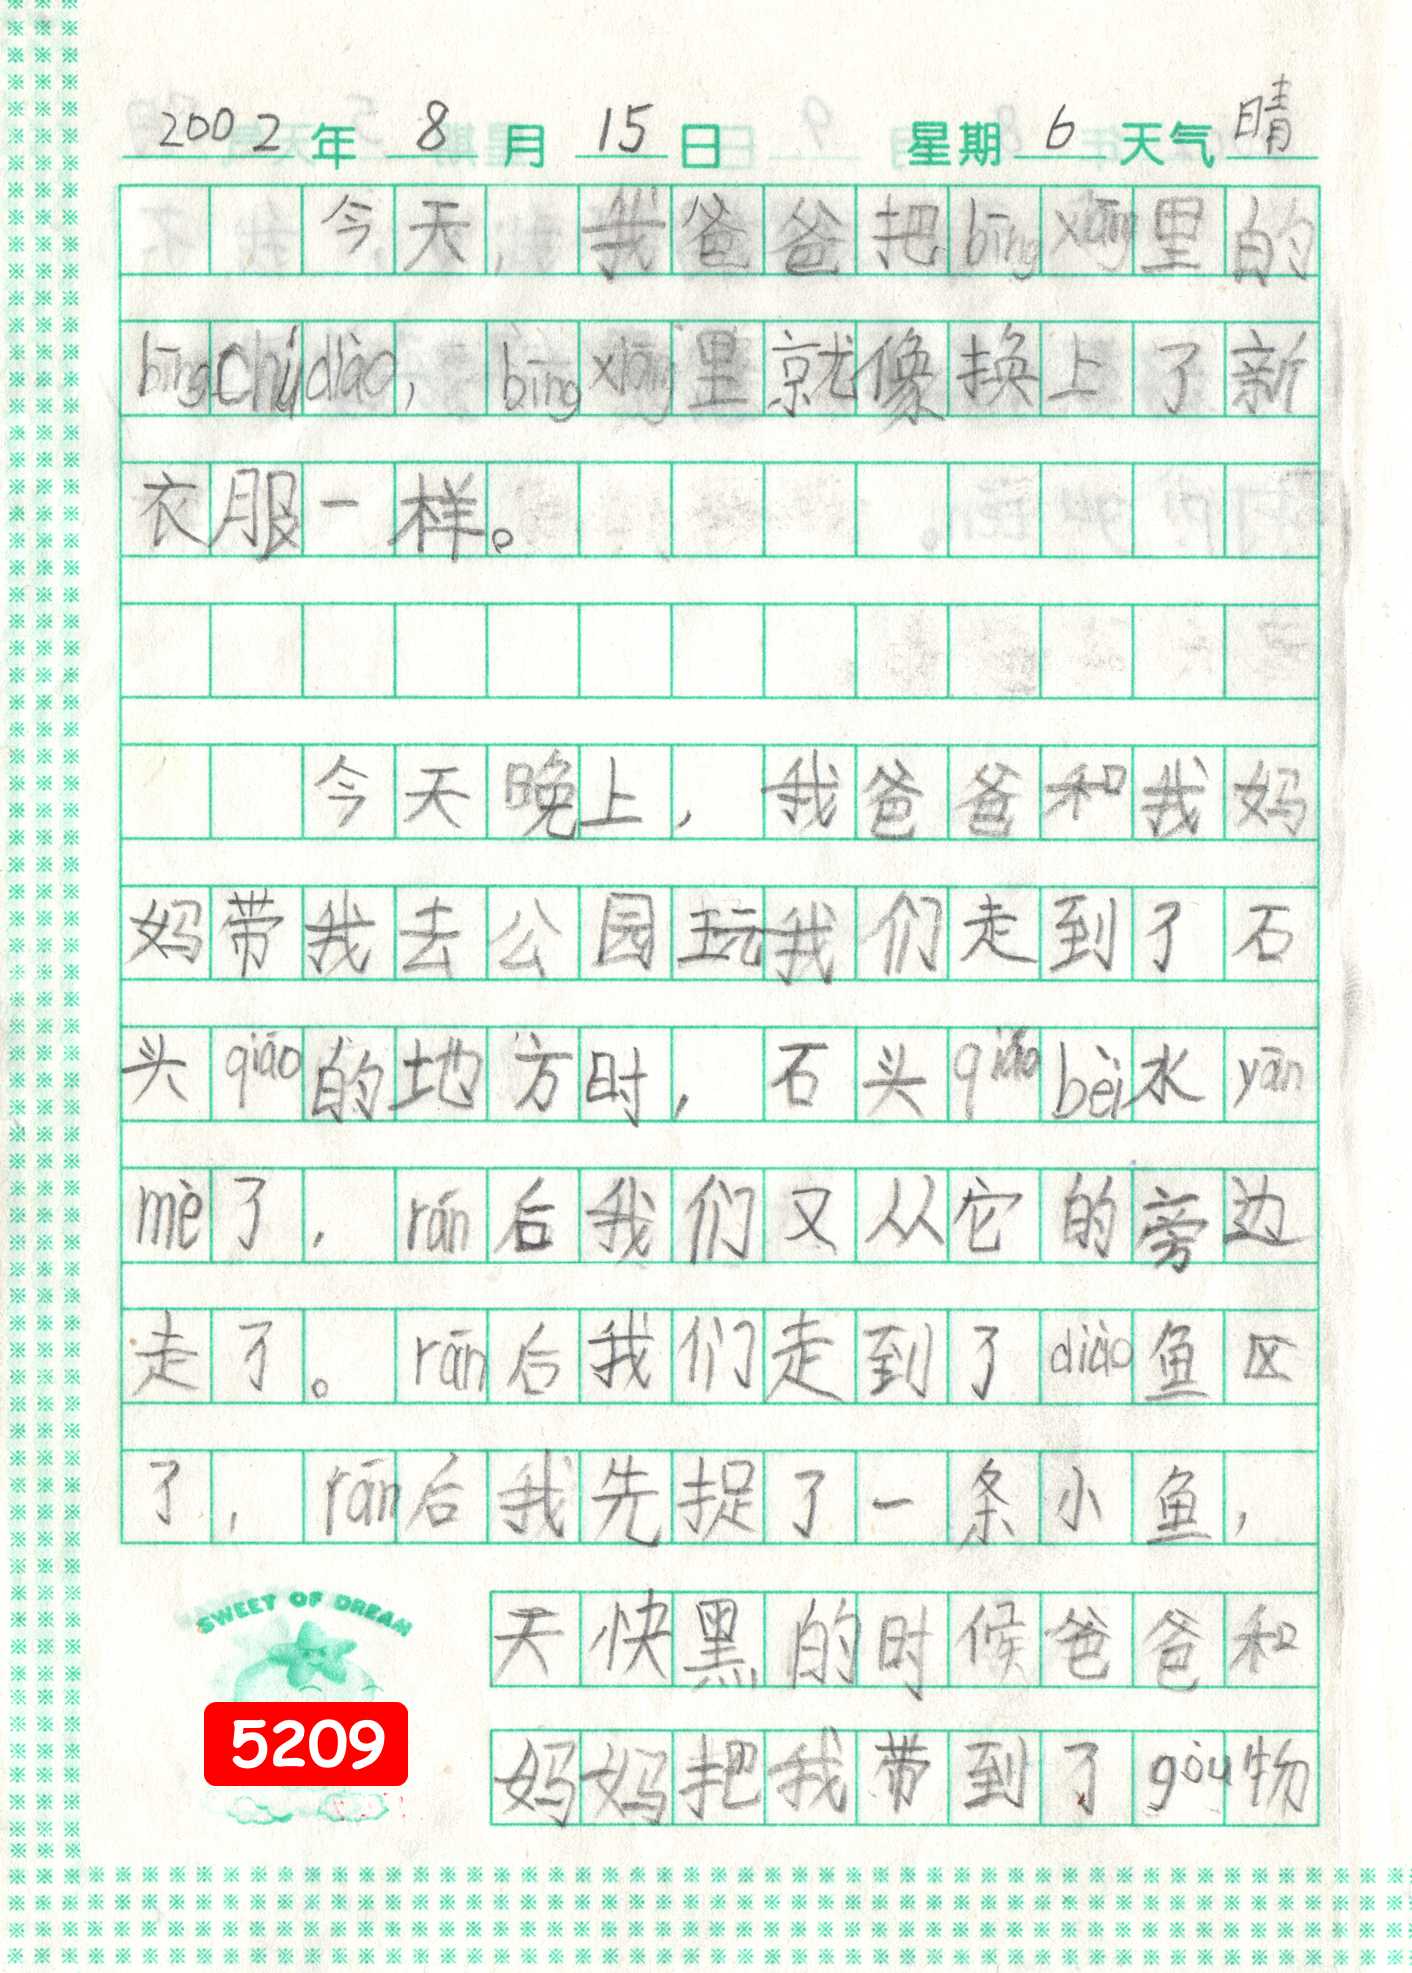 2002年8月15日 星期6天气晴
今天,我爸爸把bīngxiāng里的
bīngchúdiào,bīngxiāng里就像换上了新
衣服一样。
今天晚上,我爸爸和我妈
妈带我去公园玩我们走到了石
头qiáo的地方时,石头qiáobèi水yān
mè了,rán后我们又从它的旁边
走了。rán后我们走到了diào鱼区
了,rán后我先捉了一条小鱼,
SWEET OF DREAM
天快黑的时候爸爸和
5209
妈妈把我带到了gòu物